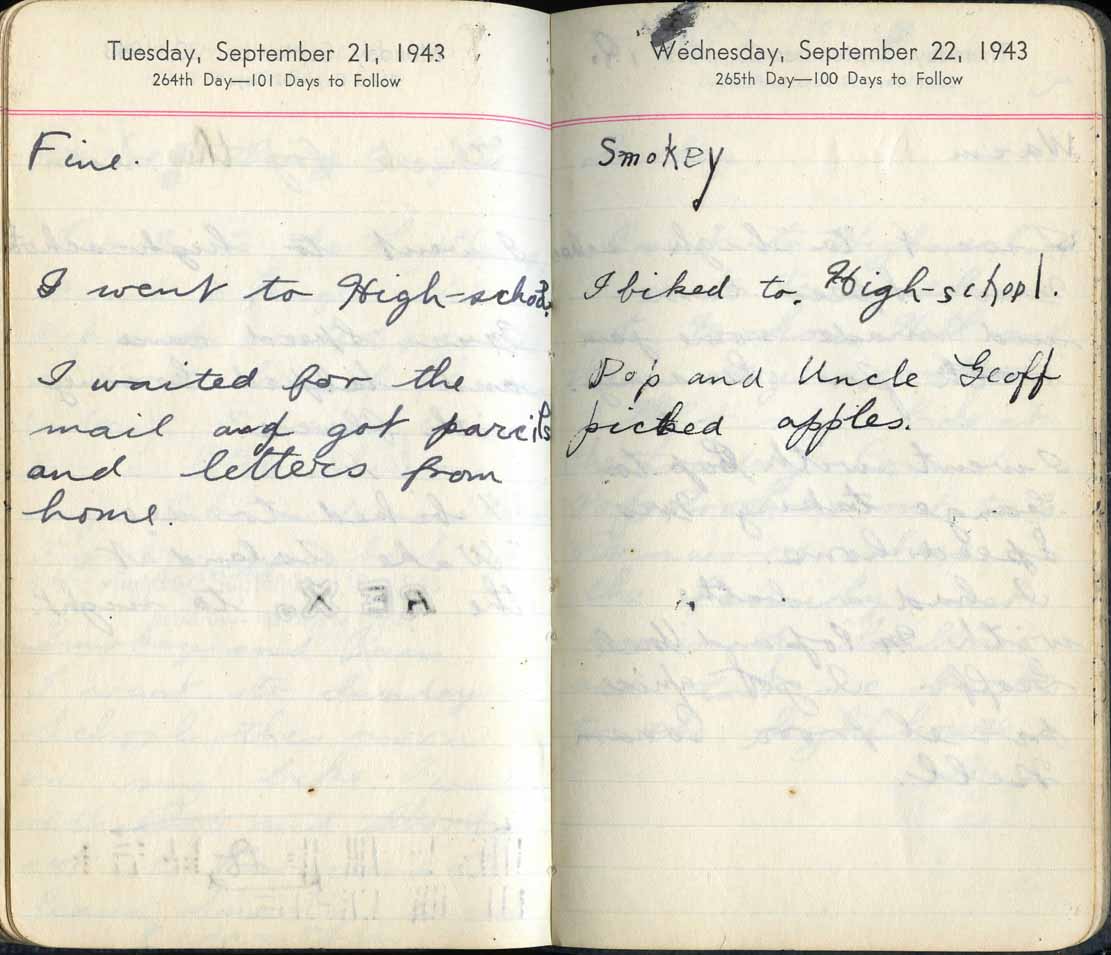 Tuesday, September 21, 1943
264th Day—101 Days to Follow
Fine.
I went to High-school.
I waited for the
mail and got parcils
and letters from
home.
Wednesday, September 22, 1943
265th Day—100 Days to Follow
Smokey
I biked to High-school.
Pop and Uncle Geoff
picked apples.